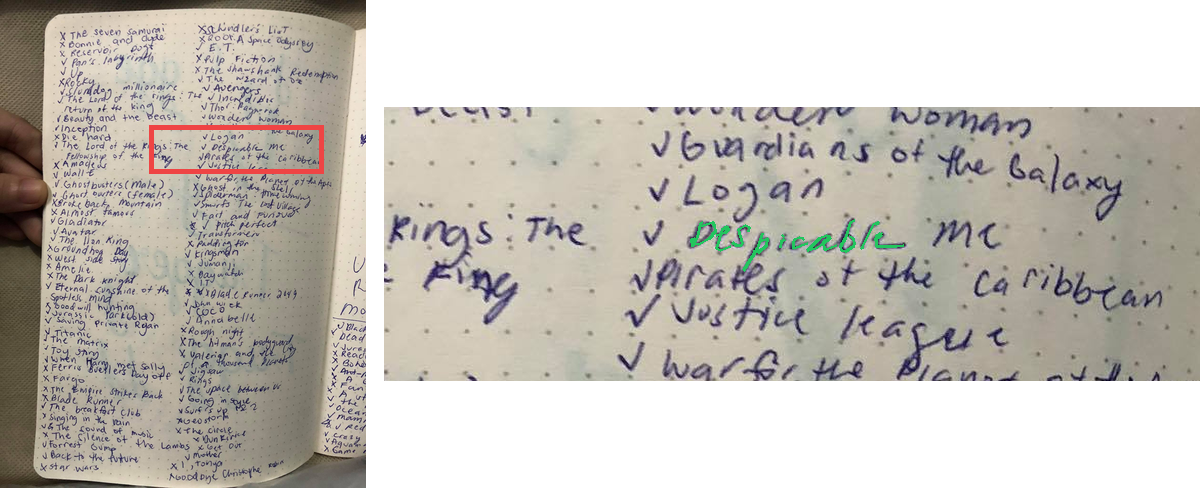 x The seven samurai
x Bonnie and Clyde
x Reservoir Dogs
✓ Pan's labyrinth
✓ Up
x Rocky
✓ Slumdog millionaire
✓ The Lord of the rings: The
return of the king
✓ Beauty and the beast
✓ Inception
x Die hard
✓ The Lord of the Kings: The
Fellowship of the King
x Amadeus
✓ Wall-E
✓ Ghostbusters (male)
✓ Ghost busters (female)
x Broke back mountain
x Almost famous
x Gladiator
✓ Avatar
✓ The lion King
x Groundhog Day
x West side story
x Amelie
x The Dark Knight
✓ Eternal sunshine of the
Spotless mind
x Good will hunting
✓ Jurassic Park (old)
✓ Saving Private Ryan
✓ Titanic
✓ The matrix
✓ Toy story
✓ When Harry met sally
x Ferris Buellers Day off
x Fargo
x The Empire strikes Back
x Blade Runner
✓ The breakfast club
x Singing in the Rain
The sound of music
x The silence of the Lambs
✓ Forrest Gump
✓ Back to the future
x star wars
x Schindler's List
x 2001: A Space Odyssey
✓ E.T.
x Pulp Fiction
x The Shawshank Redemption
✓ The wizard of oz
✓ Avengers
✓ The Incredibles
✓ Thor Ragnarok
✓ Wonder Woman
✓ Logan the Galaxy
✓ Despicable Me
✓ Pirates of the caribbean
✓ Justice
✓ War for the Planet of the Apes
x Ghost in the Shell
✓ Spiderman
✓ Smurfs The Lost Village
✓ Fast and Furious
✓ Pitch perfect
✓ Transformers
x Paddington
✓ Kingsman
✓ Jumanji
x Baywatch
x IT
x Blade Runner 2049
✓ John wick
✓ COCO
✓ Annabelle
x Rough night
x The hitman's bodyguard
x Valerian and the city
of a thousand Planets
✓ Jigsaw
✓ Rings
✓ The space between us
✓ Going in style
✓ Surf's up 2
x Geostorm
x The circle
x Dunkirk
x Get Out
✓ mother
x I, Tonya
Goodbye Christopher Robin
Wonder Woman
✓ Guardians of the Galaxy
✓ Logan
Kings: The ✓ Despicable Me
King ✓ Pirates of the caribbean
✓ Justice league
✓ War for the Planet of the